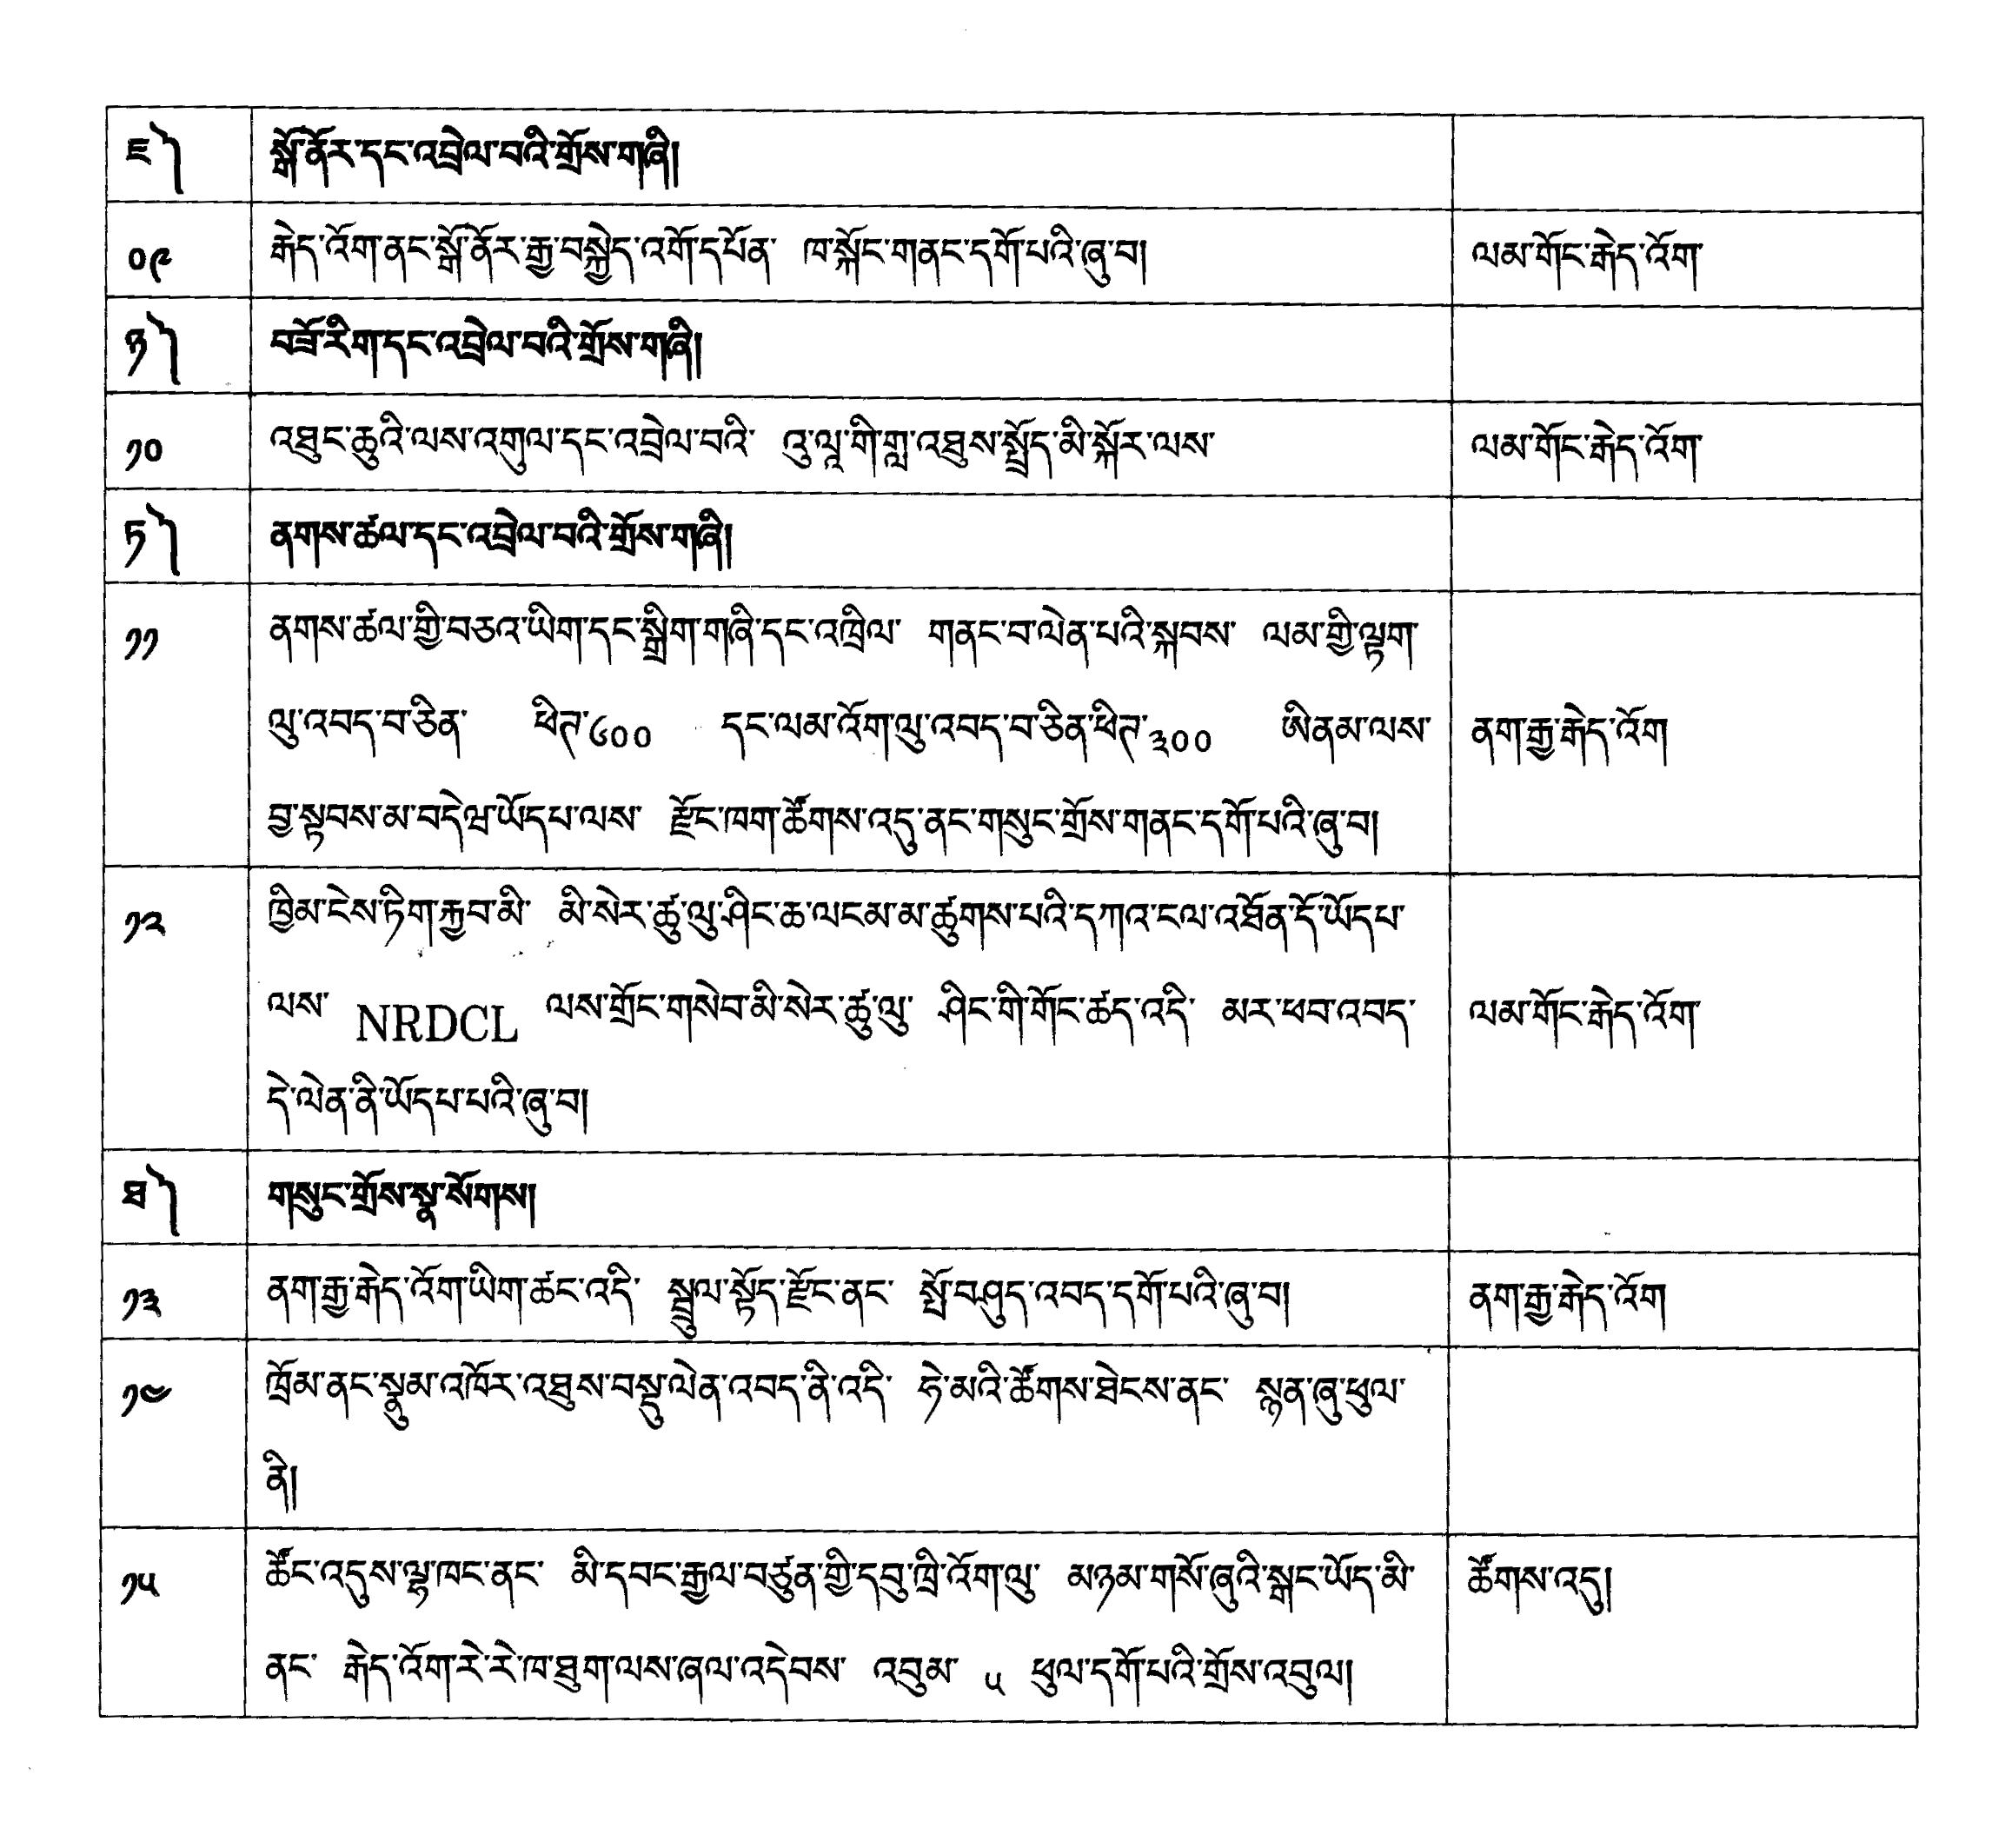 ཇ༽ སྒོ་ནོར་དང་འབྲེལ་བའི་གྲོས་གཞི།
༠༩ རྒེད་འོག་ནང་སྒོ་ནོར་རྒྱ་བསྐྱེད་འགོ་དཔོན་ ཁ་སྐོང་གནང་དགོ་པའི་ཞུ་བ། ལམ་གོང་རྒེད་འོག་
ཉ༽ བཟོ་རིག་དང་འབྲེལ་བའི་གྲོས་གཞི།
༡༠ འཐུང་ཆུའི་ལས་འགུལ་དང་འབྲེལ་བའི་ འུ་ལཱ་གི་གླ་འཐུས་སྤྲོད་མི་སྐོར་ལས་ ལམ་གོང་རྒེད་འོག་
ཏ༽ ནགས་ཚལ་དང་འབྲེལ་བའི་གྲོས་གཞི།
༡༡ ནགས་ཚལ་གྱི་བཅའ་ཡིག་དང་སྒྲིག་གཞི་དང་འཁྲིལ་ གནང་བ་ལེན་པའི་སྐབས་ ལམ་གྱི་ལྟག་
ལུ་འབད་བ་ཅིན་ ཕིཊ་༦༠༠ དང་ལམ་འོག་ལུ་འབད་བ་ཅིན་ཕིཊ་༣༠༠ ཨིནམ་ལས་ ནག་རྒྱ་རྒེད་འོག
བྱ་སྟབས་མ་བདེཝ་ཡོདཔ་ལས་ རྫོང་ཁག་ཚོགས་འདུ་ནང་གསུང་གྲོས་གནང་དགོ་པའི་ཞུ་བ།
༡༢ ཁྱིམ་ངེས་ཏིག་རྐྱབ་མི་ མི་སེར་ཚུ་ལུ་ཤིང་ཆ་ལངམ་མ་ཚུགས་པའི་དཀའ་ངལ་འཐོན་དོ་ཡོདཔ་
ལས་ NRDCL ལས་གྲོང་གསེབ་མི་སེར་ཚུ་ལུ་ ཤིང་གི་གོང་ཚད་འདི་ མར་ཕབ་འབད་ ལམ་གོང་རྒེད་འོག་
དེ་ལེན་ནི་ཡོདཔ་པའི་ཞུ་བ།
ཐ༽ གསུང་གྲོས་སྣ་སོགས།
༡༣ ནག་རྒྱ་རྒེད་འོག་ཡིག་ཚང་འདི་ སྦྲུལ་སྟོད་རྫོང་ནང་ སྤོ་བཤུད་འབད་དགོ་པའི་ཞུ་བ། ནག་རྒྱ་རྒེད་འོག
༡༤ ཁྲོམ་ནང་སྣུམ་འཁོར་འཐུས་བསྡུ་ལེན་འབད་ནི་འདི་ ཧེ་མའི་ཚོགས་ཐེངས་ནང་ སྙན་ཞུ་ཕུལ་
ནི།
༡༥ ཚོང་འདུས་ལྷ་ཁང་ནང་ མི་དབང་རྒྱལ་བཙུན་གྱི་དབུ་ཁྲི་འོག་ལུ་ མཉམ་གསོ་ཞུའི་སྒང་ཡོད་མི་ ཚོགས་འདུ།
ནང་ རྒེད་འོག་རེ་རེ་ཁ་ཐུག་ལས་ཞལ་འདེབས་ འབུམ་ ༥ ཕུལ་དགོ་པའི་གྲོས་འབུལ།